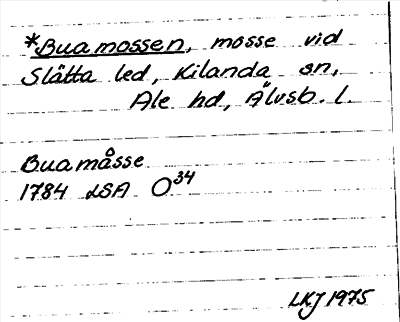 *Buamossen, mosse vid
Slätta led, Kilanda sn,
Ale hd, Älvsb. l.
Buamåsse
1784 LSA O³⁴
LKJ 1975